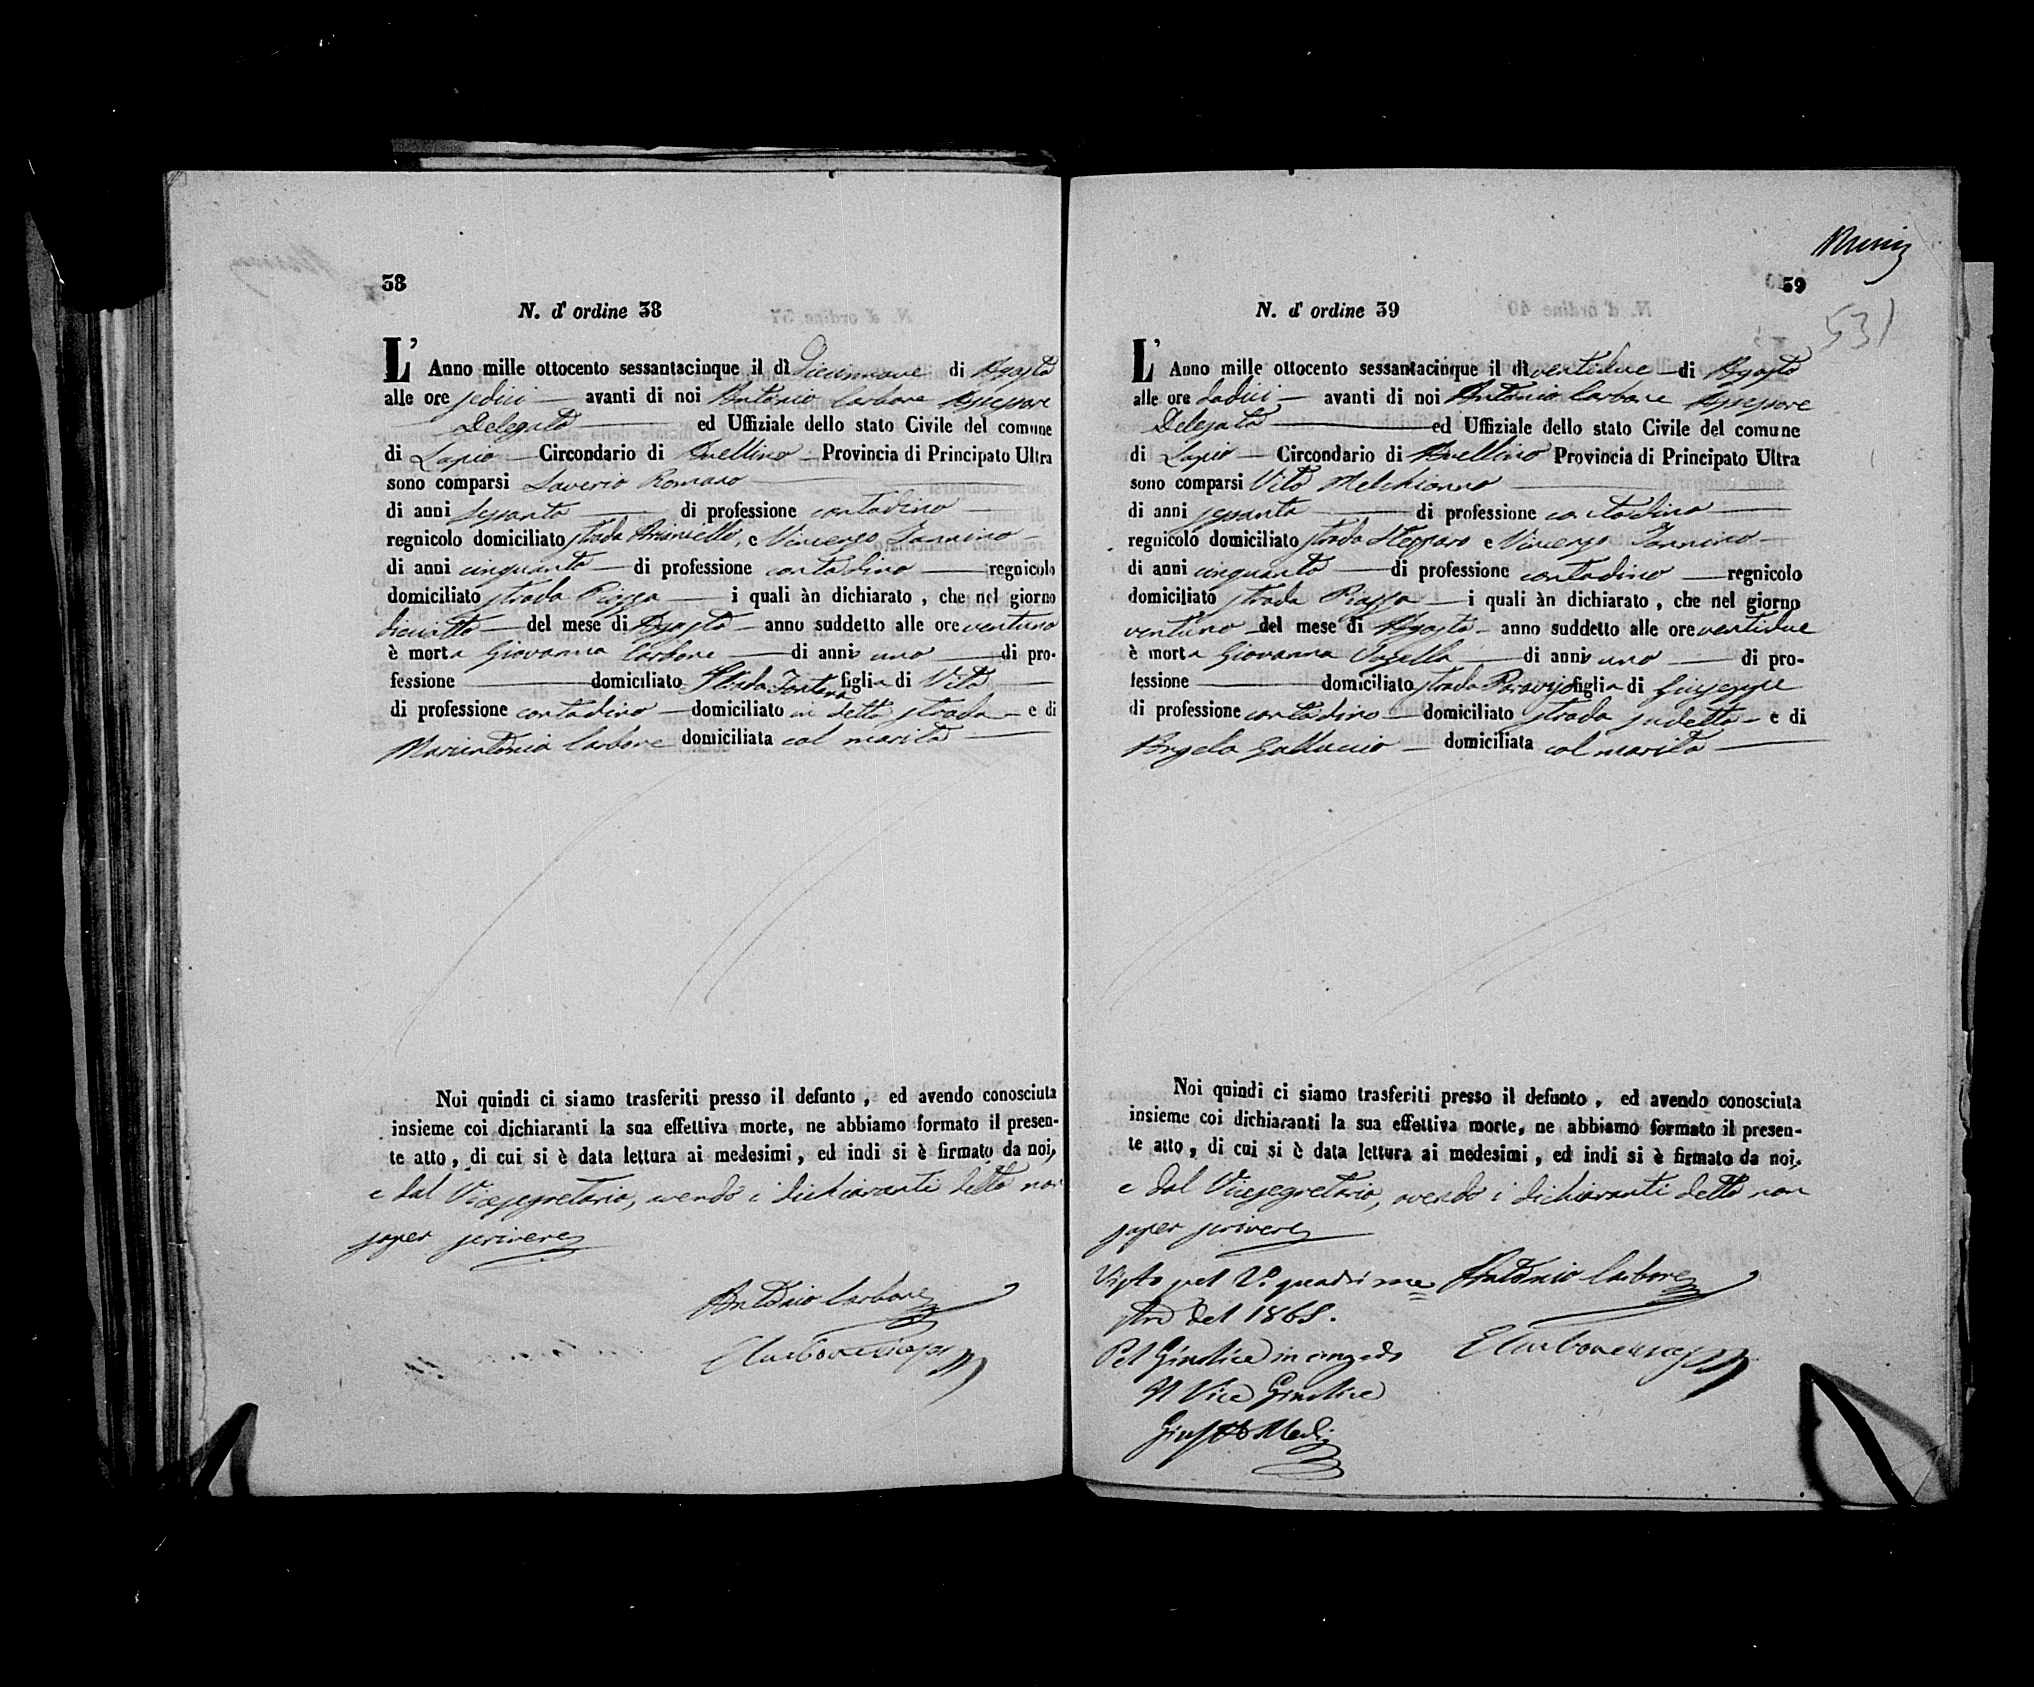 38
N. d' ordine 38
L' Anno mille ottocento sessantacinque il dì diciannove di Agosto
alle ore sedici avanti di noi Antonio Carbone Assessore
Delegato ed Uffiziale dello stato Civile del comune
di Lapio Circondario di Avellino Provincia di Principato Ultra
sono comparsi Saverio Romano
di anni sessanta di professione contadino
regnicolo domiciliato strada e Vincenzo Iannino
di anni cinquanta di professione contadino regnicolo
domiciliato strada Piazza i quali àn dichiarato, che nel giorno
diciotto del mese di Agosto anno suddetto alle ore ventuno
è morta Giovanna Carbone di anni uno di pro-
fessione domiciliato Strada Fontana figlia di Vito
di professione contadino domiciliato in detta strada e di
Mariantonia Carbone domiciliata col marito
Noi quindi ci siamo trasferiti presso il defunto, ed avendo conosciuta
insieme coi dichiaranti la sua effettiva morte, ne abbiamo formato il presen-
te atto, di cui si è data lettura ai medesimi, ed indi si è firmato da noi,
e dal Vicesegretario, avendo i dichiaranti detto non
saper scrivere
Antonio Carbone
39
531
N. d' ordine 39
L' Anno mille ottocento sessantacinque il dì ventidue di Agosto
alle ore dodici avanti di noi Antonio Carbone Assessore
Delegato ed Uffiziale dello stato Civile del comune
di Lapio Circondario di Avellino Provincia di Principato Ultra
sono comparsi Vito Melchionno
di anni sessanta di professione contadino
regnicolo domiciliato strada e Vincenzo Iannino
di anni cinquanta di professione contadino regnicolo
domiciliato strada Piazza i quali àn dichiarato, che nel giorno
ventuno del mese di Agosto anno suddetto alle ore ventidue
è morta Giovanna di anni uno di pro-
fessione domiciliato strada figlia di Giuseppe
di professione contadino domiciliato strada sudetta e di
Angela Galluccio domiciliata col marito
Noi quindi ci siamo trasferiti presso il defunto, ed avendo conosciuta
insieme coi dichiaranti la sua effettiva morte, ne abbiamo formato il presen-
te atto, di cui si è data lettura ai medesimi, ed indi si è firmato da noi.
e dal Vicesegretario, avendo i dichiaranti detto non
saper scrivere
Visto pel 2° quadrime Antonio Carbone
stre del 1865.
Pel Giudice in congedo
Il Vice Giudice